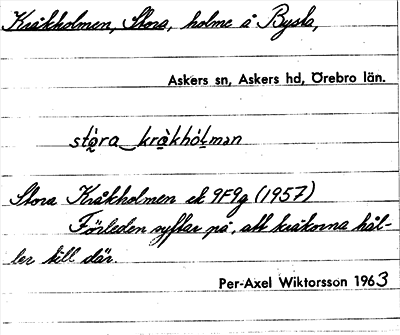 Kråkholmen, Stora, holme å Bysta,
Askers sn, Askers hd, Örebro län.
stòra kràkhólmən
Stora Kråkholmen ek 9F9g (1957)
Förleden syftar på, att kråkorna hål-
ler till där.
Per-Axel Wiktorsson 1963